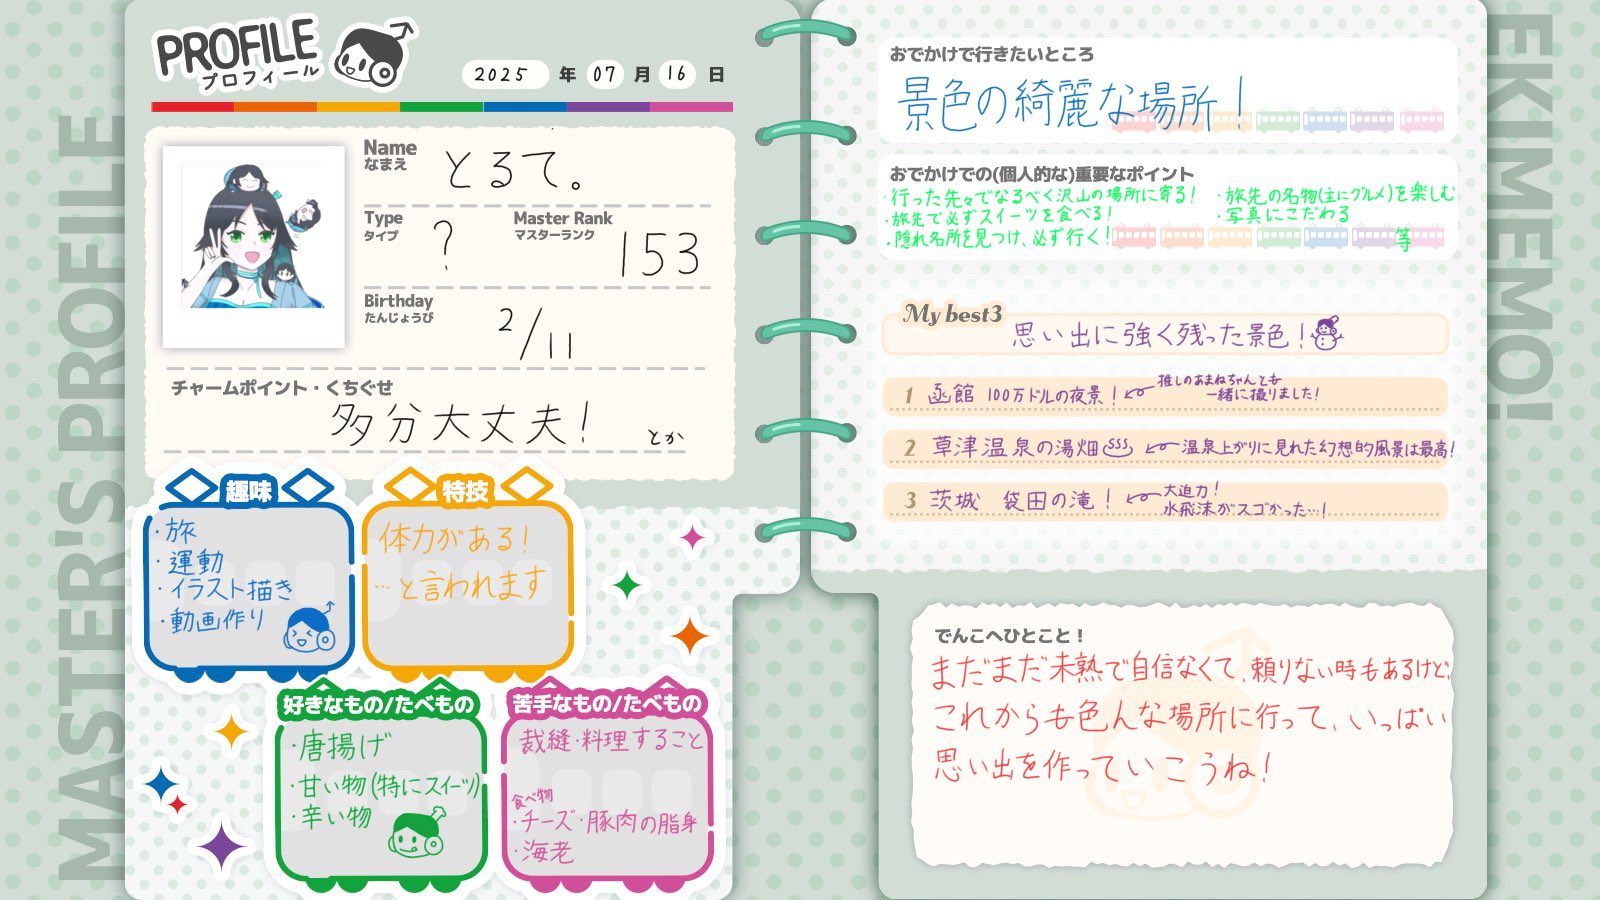 PROFILE
プロフィール
2025 年 07 月 16 日
Name
なまえ
とるて。
Type
タイプ
?
Master Rank
マスターランク
153
Birthday
たんじょうび
2/11
チャームポイント・くちぐせ
多分大丈夫! とか
趣味
・旅
・運動
・イラスト描き
・動画作り
特技
体力がある!
…と言われます
好きなもの/たべもの
・唐揚げ
・甘い物(特にスイーツ)
・辛い物
苦手なもの/たべもの
裁縫・料理すること
食べ物
・チーズ・豚肉の脂身
・海老
MASTER'S PROFILE
おでかけで行きたいところ
景色の綺麗な場所!
おでかけでの(個人的な)重要なポイント
・行った先々でなるべく沢山の場所に寄る!
・旅先で必ずスイーツを食べる!
・隠れ名所を見つけ、必ず行く!
・旅先の名物(主にグルメ)を楽しむ
・写真にこだわる
等
My best3
思い出に強く残った景色!
1 函館 100万ドルの夜景!
推しのあまねちゃんとも
一緒に撮りました!
2 草津温泉の湯畑 温泉上がりに見れた幻想的風景は最高!
3 茨城 袋田の滝!
大迫力!
水飛沫がスゴかった…!
でんこへひとこと!
まだまだ未熟で自信なくて、頼りない時もあるけど、
これからも色んな場所に行って、いっぱい
思い出を作っていこうね!
EKIMEMO!